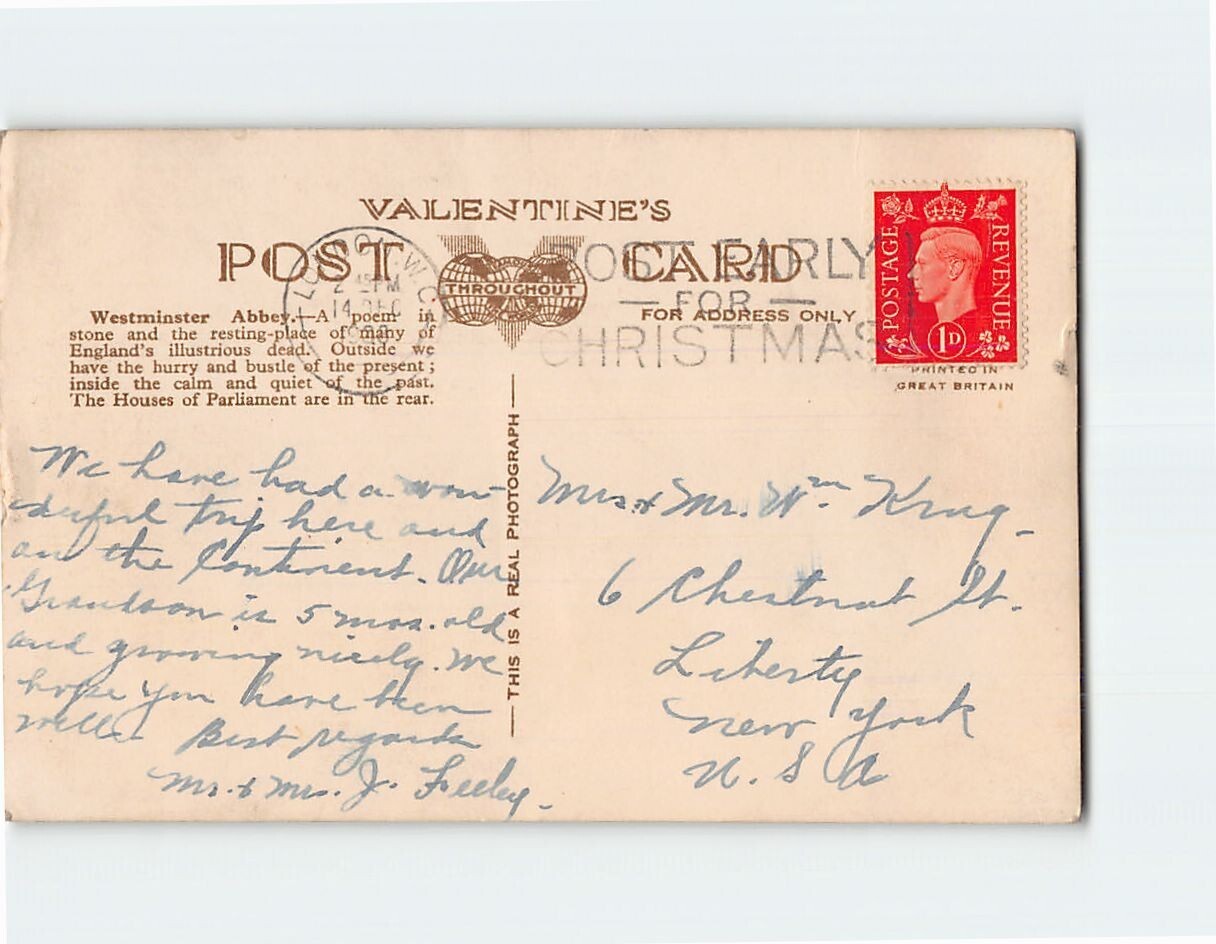 VALENTINE'S
POST CARD
THROUGHOUT
FOR ADDRESS ONLY
LONDON W.C.
2 PM
14 DEC
POST EARLY
— FOR —
CHRISTMAS
POSTAGE REVENUE
1D
PRINTED IN
GREAT BRITAIN
Westminster Abbey.—A poem in
stone and the resting-place of many of
England's illustrious dead. Outside we
have the hurry and bustle of the present;
inside the calm and quiet of the past.
The Houses of Parliament are in the rear.
— THIS IS A REAL PHOTOGRAPH —
We have had a won-
derful trip here and
on the Continent. Our
Grandson is 5 mos. old
and growing nicely. We
hope you have been
well. Best regards
Mr. & Mrs. J. Feeley.
Mrs & Mr. Wm Krug-
6 Chestnut St.
Liberty
New York
U. S A